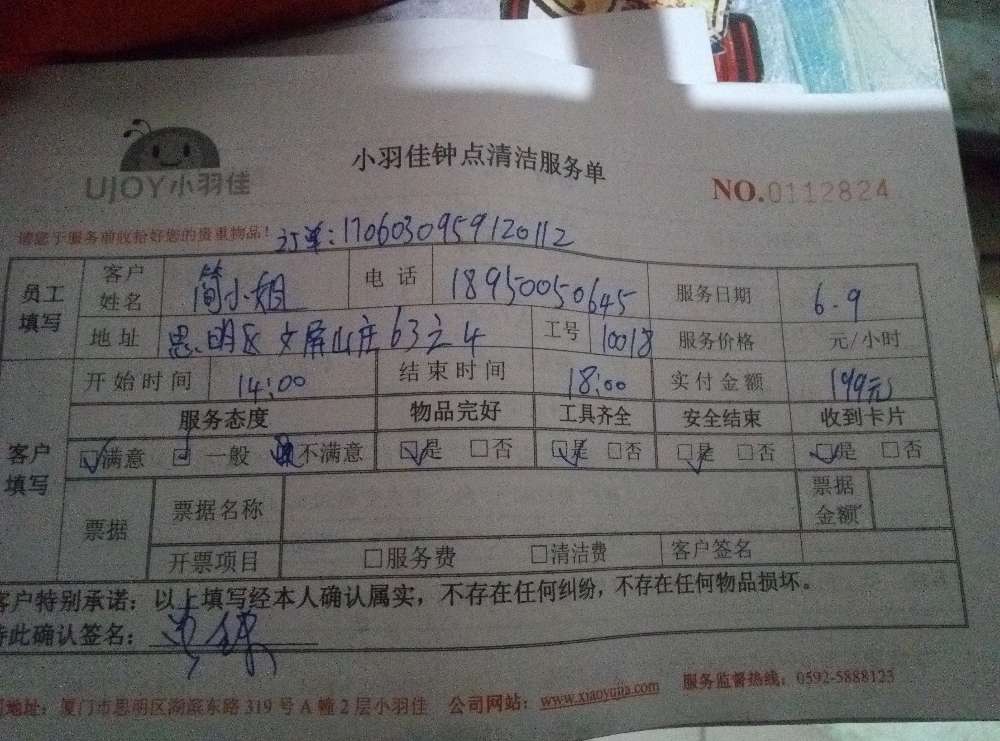 UJOY小羽佳
小羽佳钟点清洁服务单
NO.0112824
请您于服务前收拾好您的贵重物品！ 订单：1706030959120112
员工填写 客户姓名 简小姐 电话 18950050645 服务日期 6.9
地址 思明区文屏山庄63之4 工号 10018 服务价格 元/小时
客户填写 开始时间 14:00 结束时间 18:00 实付金额 199元
服务态度 物品完好 工具齐全 安全结束 收到卡片
☑满意 ☑一般 不满意 ☑是 □否 ☑是 □否 ☑是 □否 ☑是 □否
票据 票据名称 票据金额
开票项目 □服务费 □清洁费 客户签名
客户特别承诺：以上填写经本人确认属实，不存在任何纠纷，不存在任何物品损坏。
特此确认签名：
司地址：厦门市思明区湖滨东路319号A幢2层小羽佳 公司网站：www.xiaoyujia.com 服务监督热线：0592-5888123